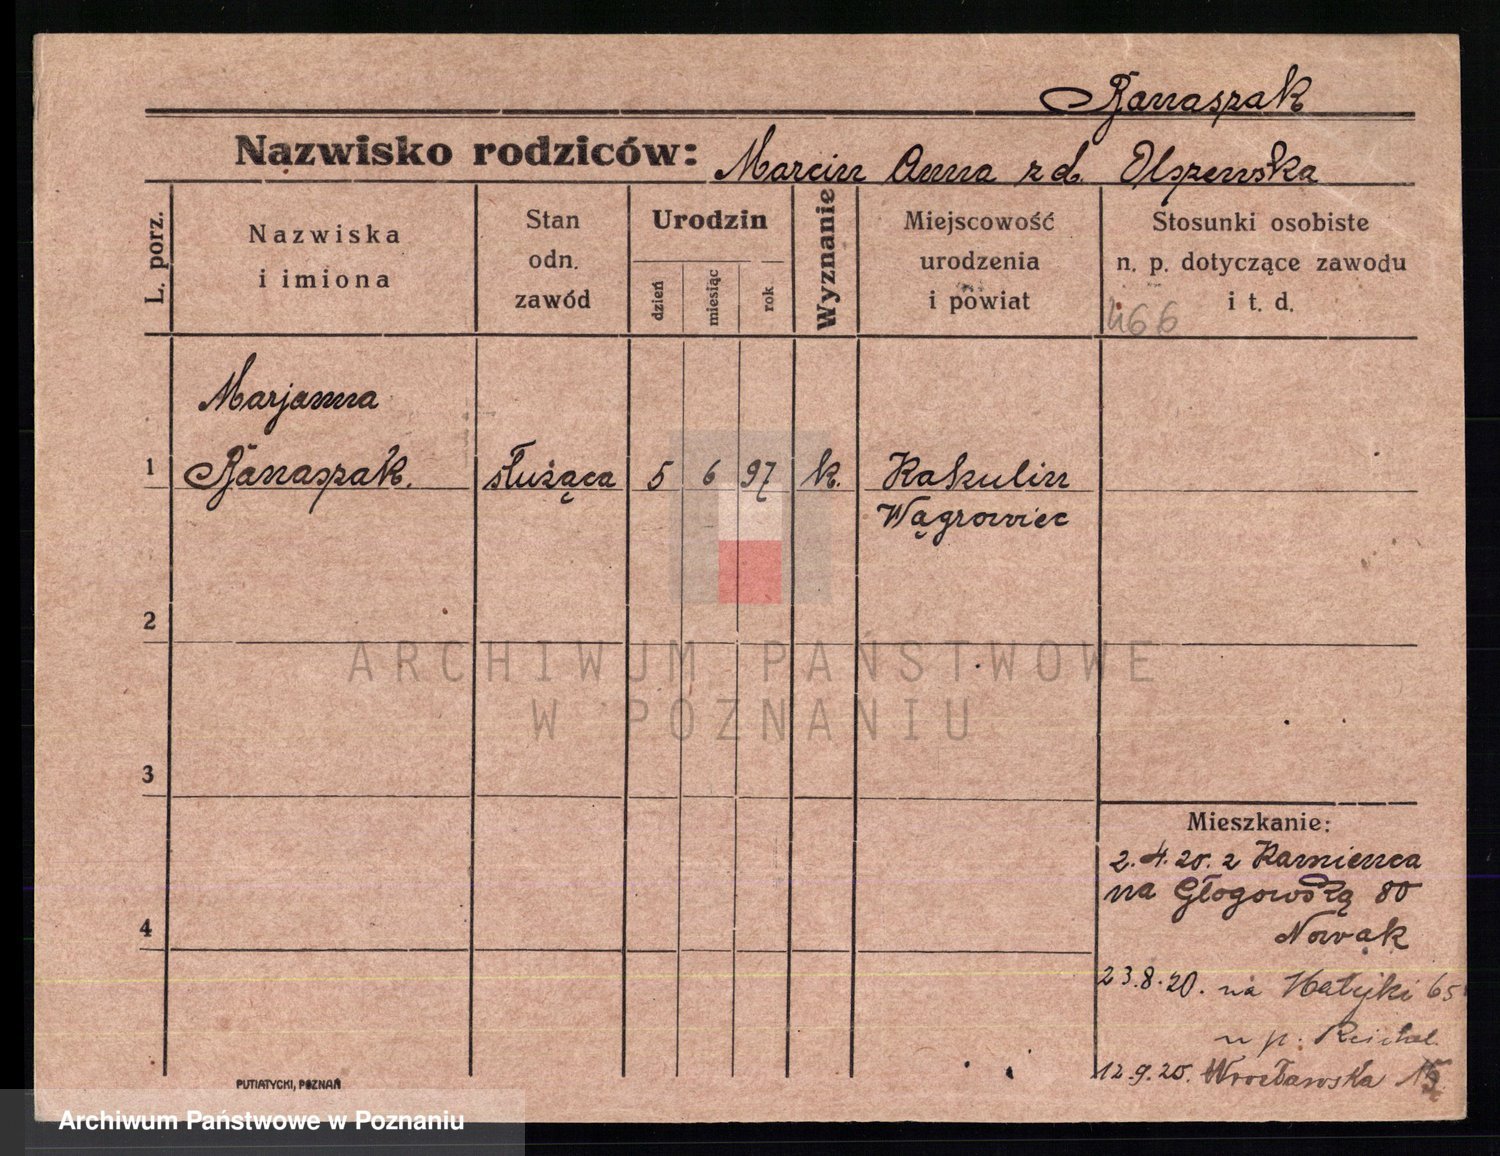 Banaszak
Nazwisko rodziców: Marcin Anna z d. Olszewska
L. porz.
Nazwiska
i imiona
Stan
odn.
zawód
Urodzin
dzień
miesiąc
rok
Wyznanie
Miejscowość
urodzenia
i powiat
Stosunki osobiste
n. p. dotyczące zawodu
i t. d.
466
Marjanna
1 Banaszak. służąca 5 6 97 k. Kakulin
Wągrowiec
2
ARCHIWUM PAŃSTWOWE
W POZNANIU
3
Mieszkanie:
2.4.20. z Kamienca
na Głogowską 80
4
Nowak
23.8.20. na Matejki 65
u p.
12.9.20. Wrocławska 15
PUTIATYCKI, POZNAŃ
Archiwum Państwowe w Poznaniu